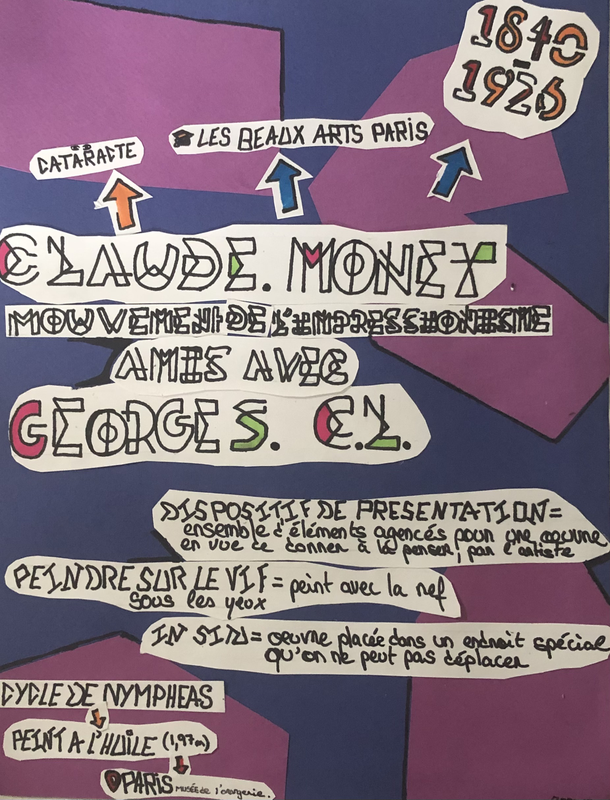 1840
-
1926
CATARACTE
LES BEAUX ARTS PARIS
CLAUDE. MONET
MOUVEMENT DE L'IMPRESSIONISME
AMIS AVEC
GEORGES. C.L.
DISPOSITIF DE PRESENTATION=
ensemble d'éléments agencés pour une œuvre
en vue de donner à la penser, par l'artiste
PEINDRE SUR LE VIF = peint avec la ref
sous les yeux
IN SITU = œuvre placée dans un endroit spécial
qu'on ne peut pas déplacer
CYCLE DE NYMPHEAS
PEINT A L'HUILE (1,97m)
PARIS MUSÉE de l'orangerie.